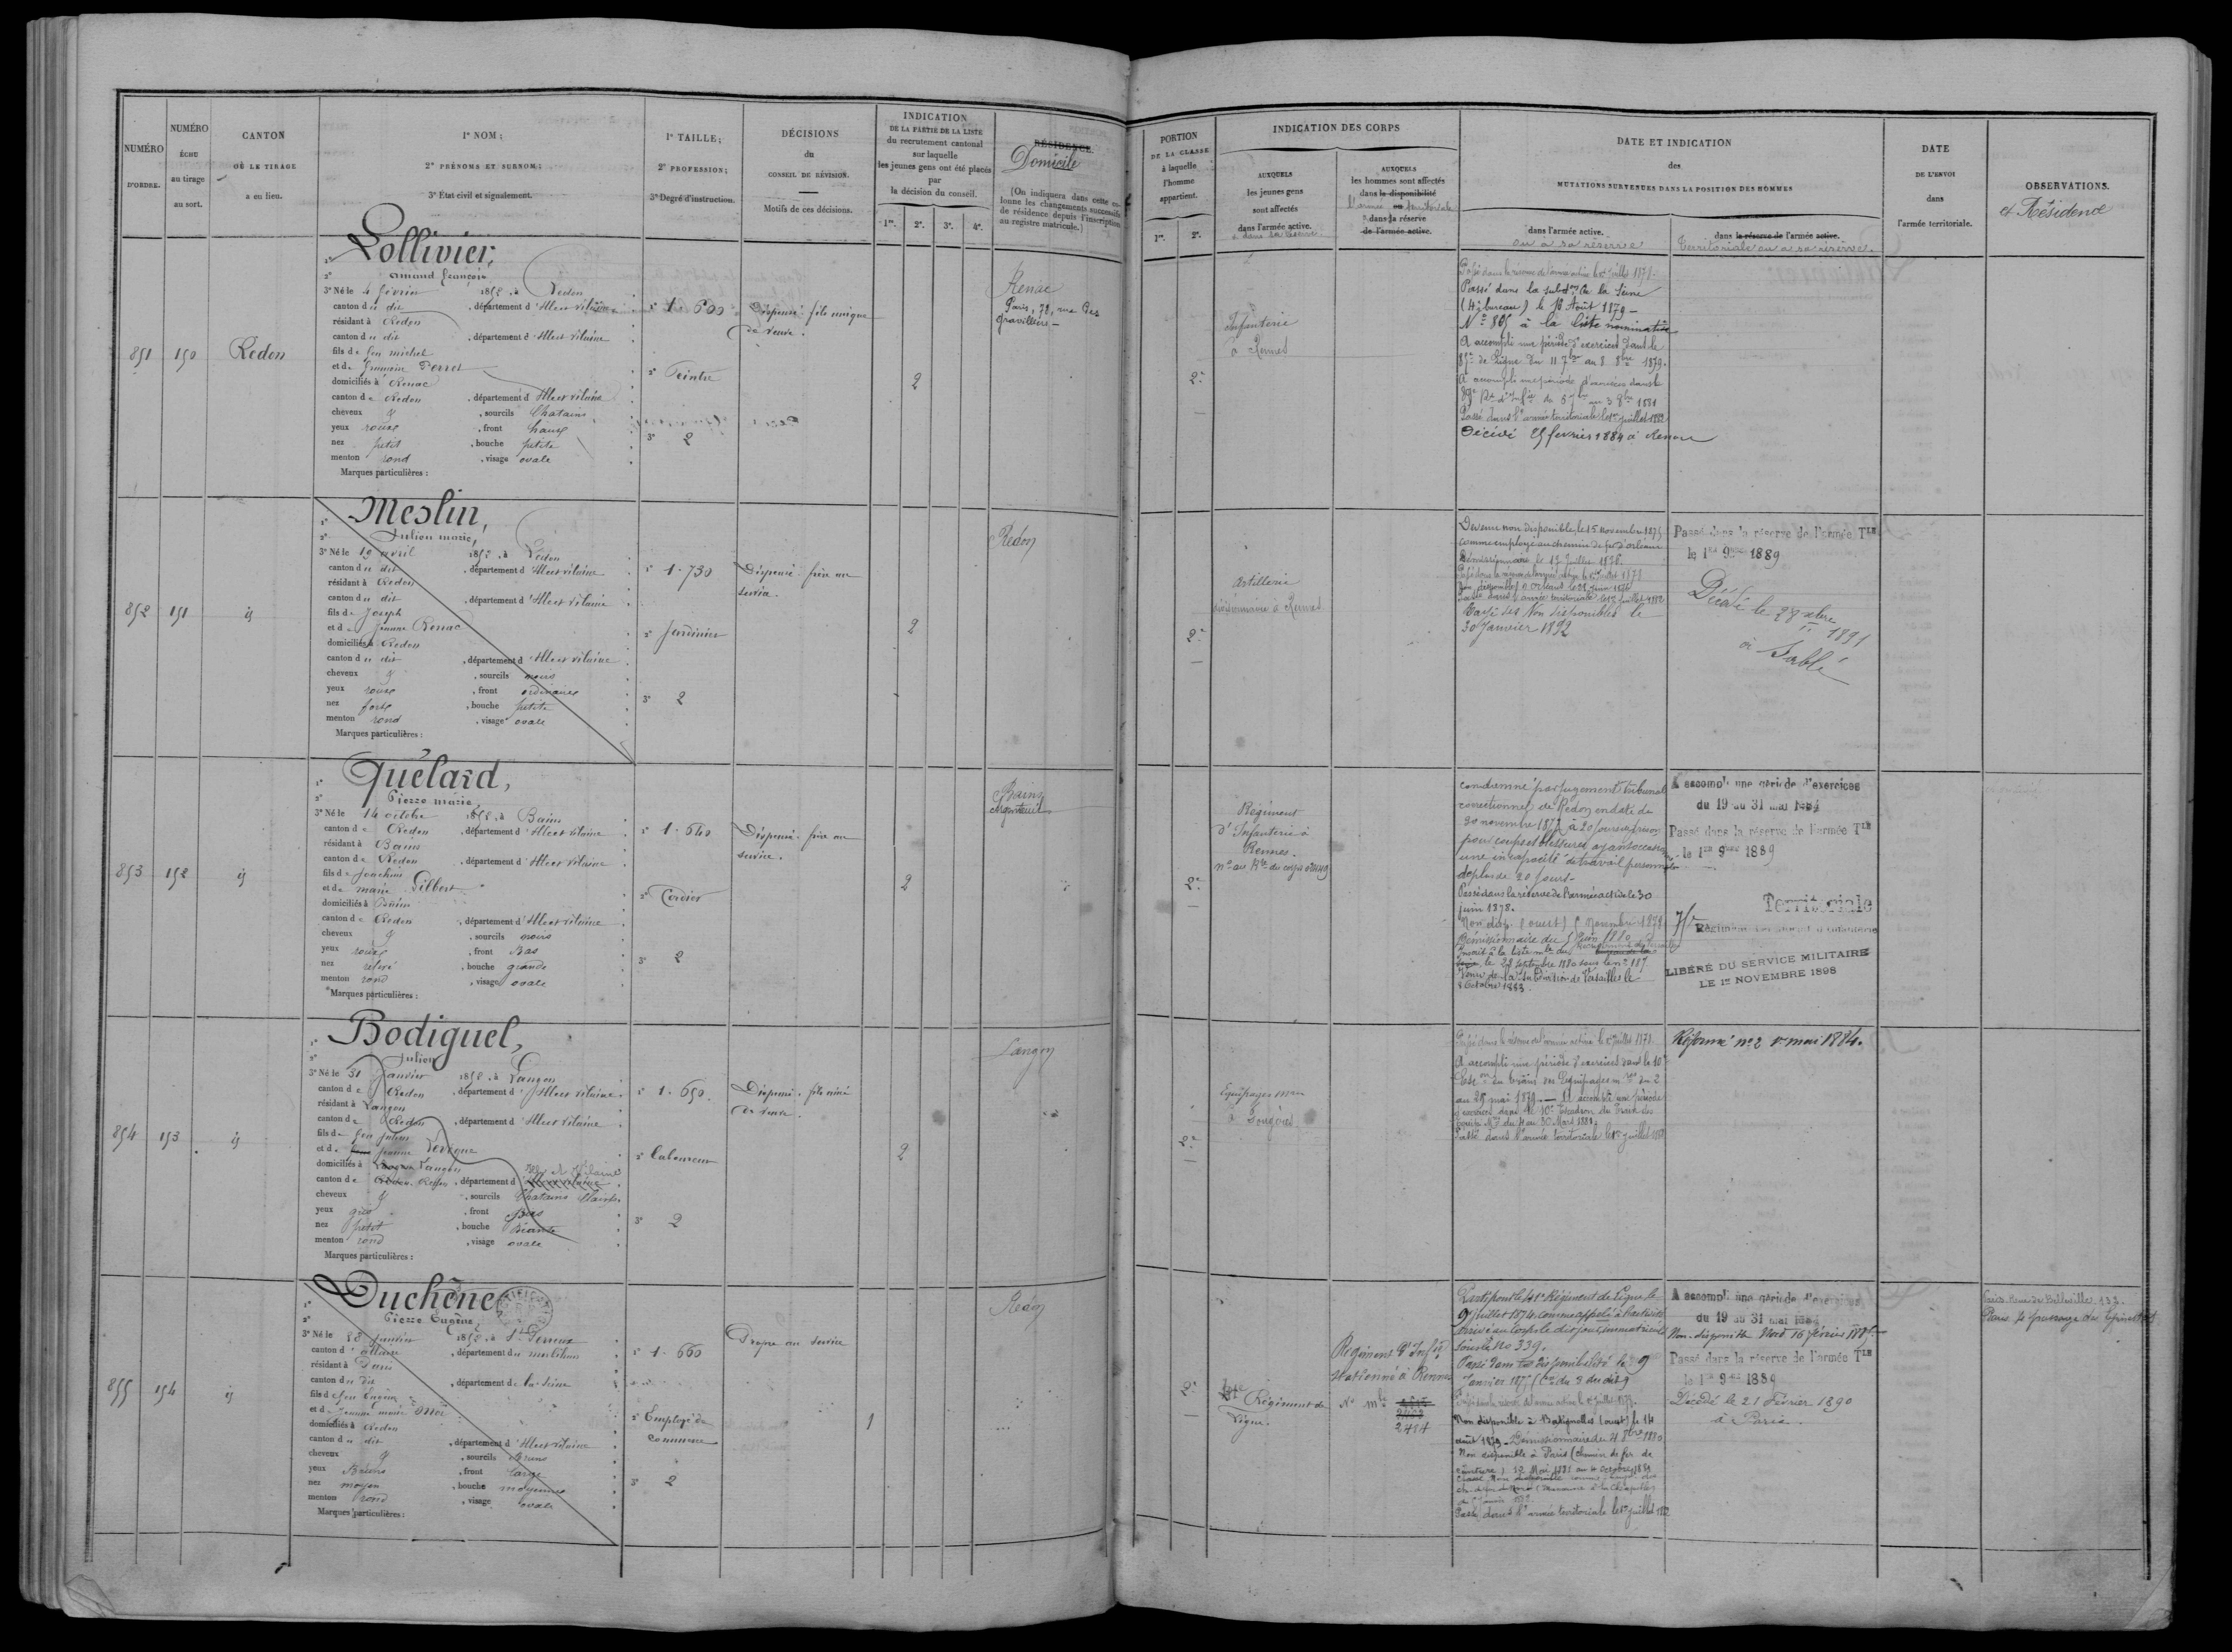 NUMÉRO
D'ORDRE.
NUMÉRO
ÉCHU
au tirage
au sort.
CANTON
OÙ LE TIRAGE
a eu lieu.
1° NOM;
2° PRÉNOMS ET SURNOM;
3° État civil et signalement.
1° TAILLE;
2° PROFESSION;
3° Degré d'instruction.
DÉCISIONS
du
CONSEIL DE RÉVISION.
Motifs de ces décisions.
INDICATION
DE LA PARTIE DE LA LISTE
du recrutement cantonal
sur laquelle
les jeunes gens ont été placés
par
la décision du conseil.
1re. 2e. 3e. 4e.
RÉSIDENCE.
Domicile
(On indiquera dans cette co-
lonne les changements successifs
de résidence depuis l'inscription
au registre matricule.)
851 150 Redon
1° Lollivier,
2° Amand François
3° Né le 4 février 1852, à Redon
canton du dit, département d'Ille et Vilaine
résidant à Redon
canton du dit, département d'Ille et Vilaine
fils de feu Michel
et de Perret
domiciliés à Renac
canton de Redon, département d'Ille et Vilaine
cheveux et, sourcils Chatains
yeux roux, front haut
nez petit, bouche petite
menton rond, visage ovale
Marques particulières :
1° 1.600
2° Peintre
3° 2
Dispensé. fils unique
de veuve.
2
Renac
Paris, 78, rue des
Gravilliers
852 151 id
1° Meslin,
2° Julien Marie,
3° Né le 19 avril 1852, à Redon
canton du dit, département d'Ille et Vilaine
résidant à Redon
canton du dit, département d'Ille et Vilaine
fils de Joseph
et de Jeanne Renac
domiciliés à Redon
canton du dit, département d'Ille et Vilaine
cheveux et, sourcils noirs
yeux roux, front ordinaire
nez fort, bouche petite
menton rond, visage ovale
Marques particulières :
1° 1.730
2° Jardinier
3° 2
Dispensé. frère au
service.
2
Redon
853 152 id
1° Quélard,
2° Pierre Marie,
3° Né le 14 octobre 1852, à Bains
canton de Redon, département d'Ille et Vilaine
résidant à Bains
canton de Redon, département d'Ille et Vilaine
fils de Joachim
et de Marie Gilbert
domiciliés à Bains
canton de Redon, département d'Ille et Vilaine
cheveux et, sourcils noirs
yeux roux, front Bas
nez relevé, bouche grande
menton rond, visage ovale
Marques particulières :
1° 1.640
2° Cordier
3° 2
Dispensé. frère au
service.
2
Bains
Argenteuil
854 153 id
1° Bodiguel,
2° Julien
3° Né le 31 Janvier 1852, à Langon
canton de Redon, département d'Ille et Vilaine
résidant à Langon
canton de Redon, département d'Ille et Vilaine
fils de feu Julien
et de Jeanne
domiciliés à Langon
canton de Redon, département d
cheveux et, sourcils Chatains clairs
yeux gris, front Bas
nez petit, bouche
menton rond, visage ovale
Marques particulières :
1° 1.650
2° Laboureur
3° 2
Dispensé. fils aîné
de veuve.
2
Langon
855 154 id
1° Duchêne
2° Pierre Eugène,
3° Né le 28 Janvier 1852, à St Perreux
canton d'Allaire, département du Morbihan
résidant à Paris
canton du dit, département de la Seine
fils de feu Eugène
et de Jeanne Marie
domiciliés à Redon
canton du dit, département d'Ille et Vilaine
cheveux et, sourcils Bruns
yeux Bruns, front large
nez moyen, bouche moyenne
menton rond, visage ovale
Marques particulières :
1° 1.660
2° Employé de
commerce
3° 2
Propre au service
1
Redon
PORTION
DE LA CLASSE
à laquelle
l'homme
appartient.
1re. 2e.
INDICATION DES CORPS
AUXQUELS
les jeunes gens
sont affectés
dans l'armée active.
AUXQUELS
les hommes sont affectés
dans la disponibilité
l'armée territoriale
dans la réserve
de l'armée active.
DATE ET INDICATION
des
MUTATIONS SURVENUES DANS LA POSITION DES HOMMES
dans l'armée active.
ou à sa réserve
dans la réserve de l'armée active.
Territoriale ou à sa réserve.
DATE
DE L'ENVOI
dans
l'armée territoriale.
OBSERVATIONS.
et Résidence
2e
Infanterie
à Rennes
Passé dans la réserve de l'armée active le 1er juillet 1878.
Passé dans la subdon de la Seine
(4e bureau) le 18 Août 1879 -
No 865 à la liste nominative
A accompli une période d'exercices dans le
de Ligne du 11 7bre au 8 8bre 1879.
A accompli une période d'exercices dans le
1881
Passé dans l'armée territoriale le 1er juillet 1882
Décédé 25 février 1884 à Renac
2e
Artillerie
divisionnaire à Rennes
Devenu non disponible, le 15 novembre 1875
comme employé au chemin de fer d'Orléans
Démissionnaire le 13 Juillet 1876.
Passé dans l'armée territoriale le 1er Juillet 1882
Rayé des Non disponibles le
30 Janvier 1892
Passé dans la réserve de l'armée Tle
le 1er 9bre 1889
Décédé le 28 Xbre
1891
à Sablé
2e
Régiment
d'Infanterie à
Rennes.
Condamné par jugement tribunal
correctionnel de Redon en date du
20 novembre 1877 à 20 jours de prison
pour coups et blessures ayant occasionné
une incapacité de travail personnel
de plus de 20 jours.
Passé dans la réserve de l'armée active le 30
juin 1878.
Non disp. (ouest) 5 Novembre 1879
Démissionnaire du 5 Juin 1880
le 28 septembre 1880 sous le no 187
Venu de la Subdivision de Versailles le
8 Octobre 1883.
A accompli une période d'exercices
du 19 au 31 mai 1884
Passé dans la réserve de l'armée Tle
le 1er 9bre 1889
Territoriale
75e Régiment territorial d'Infanterie
LIBÉRÉ DU SERVICE MILITAIRE
LE 1er NOVEMBRE 1898
2e
Equipages mres
à Fougères
Passé dans la réserve de l'armée active le 1er juillet 1878.
A accompli une période d'exercices dans le 10e
Escon du train des Equipages mres du 2
au 29 mai 1879. — A accompli une période
d'exercices dans le 10e Escadron du Train des
du 4 au 30 Mars 1881.
Passé dans l'armée territoriale le 1er juillet 1882
Réformé no 2 1er mai 1884.
2e
Régiment de
Ligne.
Régiment d'Infie
stationné à Rennes
No mle
2414
Parti pour le 41e Régiment de Ligne le
9 juillet 1874 comme appelé à l'activité
Arrivé au Corps le dit jour, immatriculé
sous le No 339.
Passé dans la disponibilité le 9
Janvier 1875
Passé dans la réserve de l'armée active le 1er juillet 1879.
Non disponible à Batignolles (ouest) le 14
août 1879. Démissionnaire du 21 8bre 1880
Non disponible à Paris (Chemin de fer de
ceinture) 12 Mai 1881 au 4 octobre 1881
Passé dans l'armée territoriale le 1er juillet 1882
A accompli une période d'exercices
du 19 au 31 mai 1884
Non-disponible Nord 16 février 1885
Passé dans la réserve de l'armée Tle
le 1er 9bre 1889
Décédé le 21 Février 1890
à Paris.
Paris. Rue de Belleville 137.